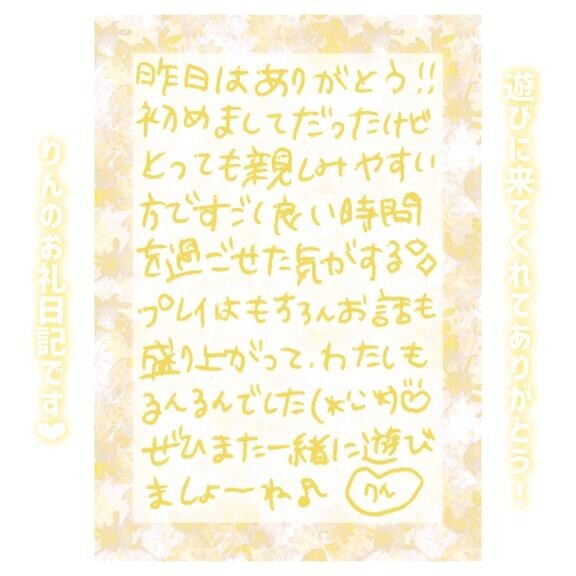 遊びに来てくれてありがとう!
昨日はありがとう!!
初めましてだったけど
とっても親しみやすい
方ですごく良い時間
を過ごせた気がする
プレイはもちろんお話も
盛り上がって、わたしも
るんるんでした(*'ω'*)♡
ぜひまた一緒に遊び
ましょーね♪
りん
りんのお礼日記です❤